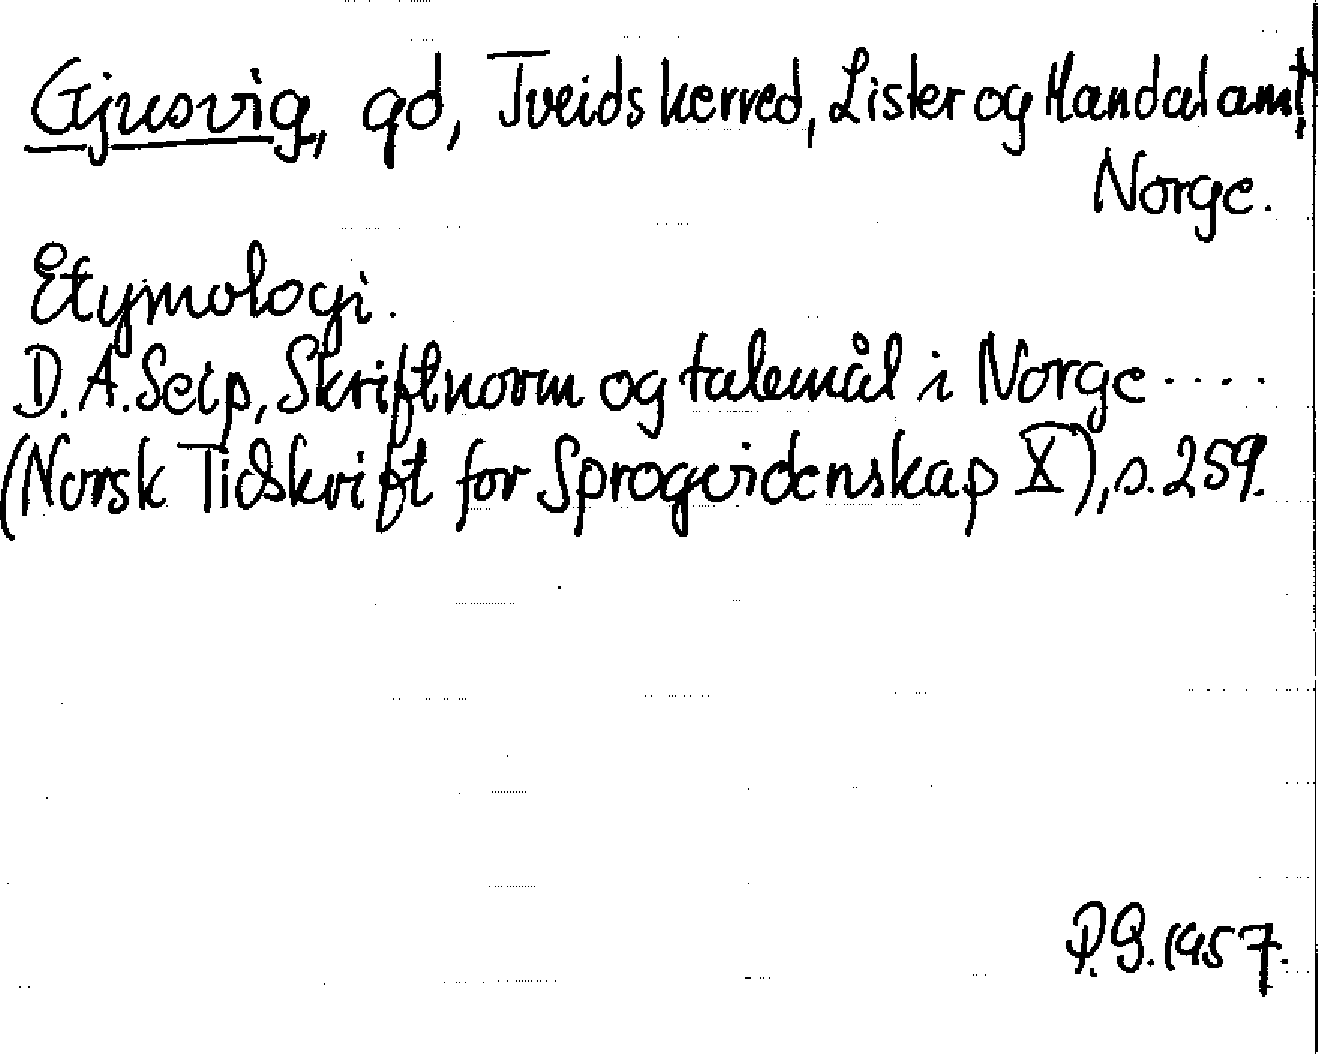 Gjusvig, gd, Tveids herred, Lister og Mandal amt,
Norge.
Etymologi.
D.A. Seip, Skriftnorm og talemål i Norge ....
(Norsk Tidskrift for Sprogvidenskap X), s. 259.
P.G. 1957.